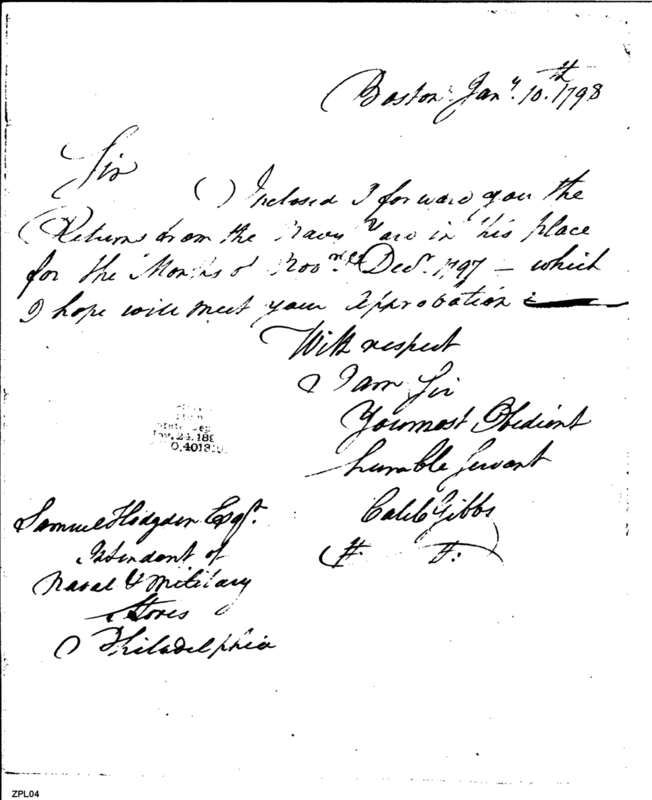 Boston Jany. 10.th 1798
Sir
Inclosed I forward you the
Returns from the Navy Yard in this place
for the Months of Novr. & Decr. 1797 — which
I hope will meet your approbation
With respect
I am Sir
Your most Obedient
humble Servant
Caleb Gibbs
Samuel Hodgdon Esqr.
Intendant of
Naval & Military
Stores
Philadelphia
ZPL04